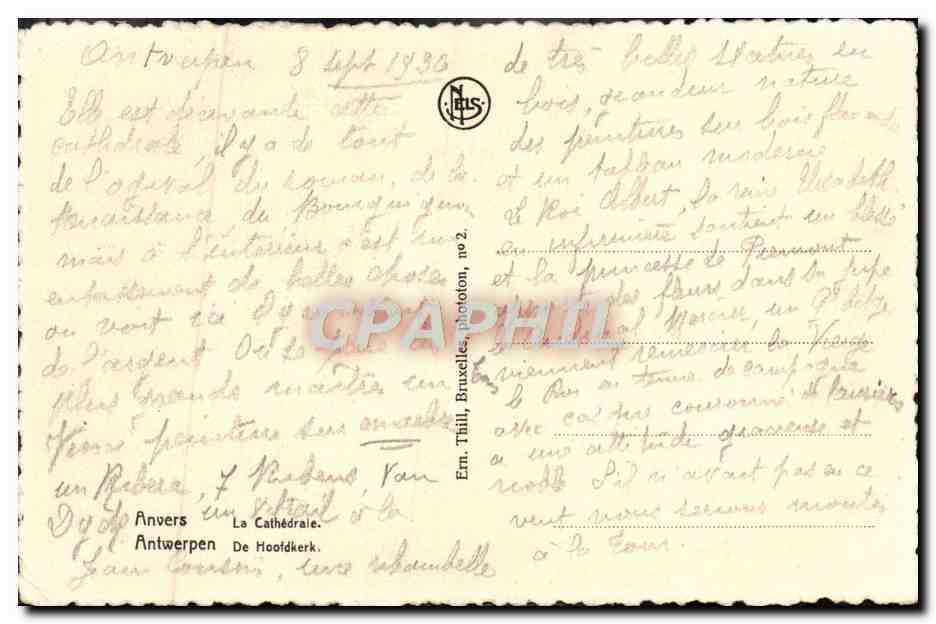 Antwerpen 8 Sept 1930
Elle est décevante cette
cathédrale, il y a de tout
de l'ogival du roman, de la
Renaissance du Bourguignon
mais à l'intérieur c'est un
de belles choses
on voit ici
de l'argent
plus grands maîtres un
peinture sur marbre
un Ribera, 7 Rubens, Van
Dyck un vitrail à la
Jean Cousin, une ribambelle
Anvers La Cathédrale.
Antwerpen De Hoofdkerk.
NELS
Ern. Thill, Bruxelles, phototon, nº 2.
CPAPHIL
de très belles statues en
bois, grandeur nature
des peintures sur bois
et un tableau moderne
Le Roi Albert, la reine Elisabeth
en infirmière soutient un blessé
et la princesse de Piémont
des fleurs dans sa jupe
Mercier, un
viennent remercier la Vierge
le Roi en tenue de campagne
avec casque couronné de lauriers
a une attitude gracieuse et
noble S'il n'avait pas eu ce
vent nous serions montés
à la Tour.